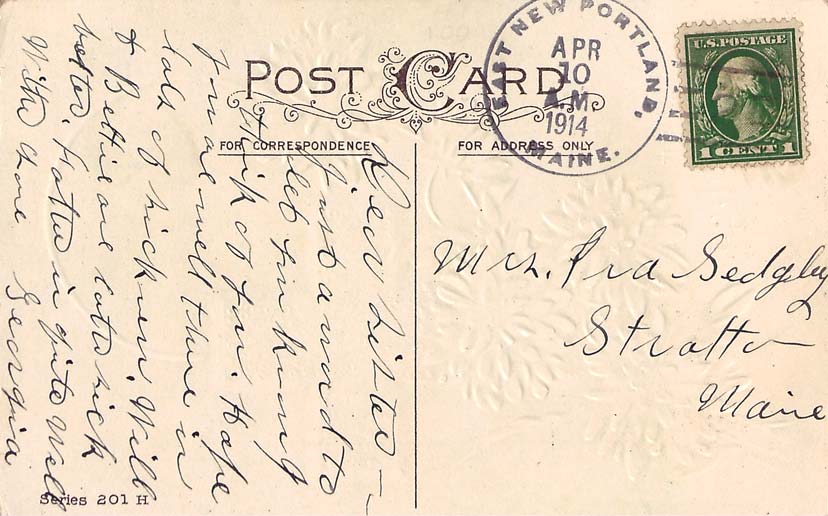 POST CARD
FOR CORRESPONDENCE
FOR ADDRESS ONLY
EAST NEW PORTLAND, MAINE.
APR
10
A.M
1914
U.S. POSTAGE
1 CENT 1
Dear Sister —
Just a word to
let you know I
think of you. Hope
you are well there is
lots of sickness. Will
& Bertie are both sick
better. Hattie is quite Well
With love Georgia
Mrs. Ira Sedgley
Stratton
Maine
Series 201 H